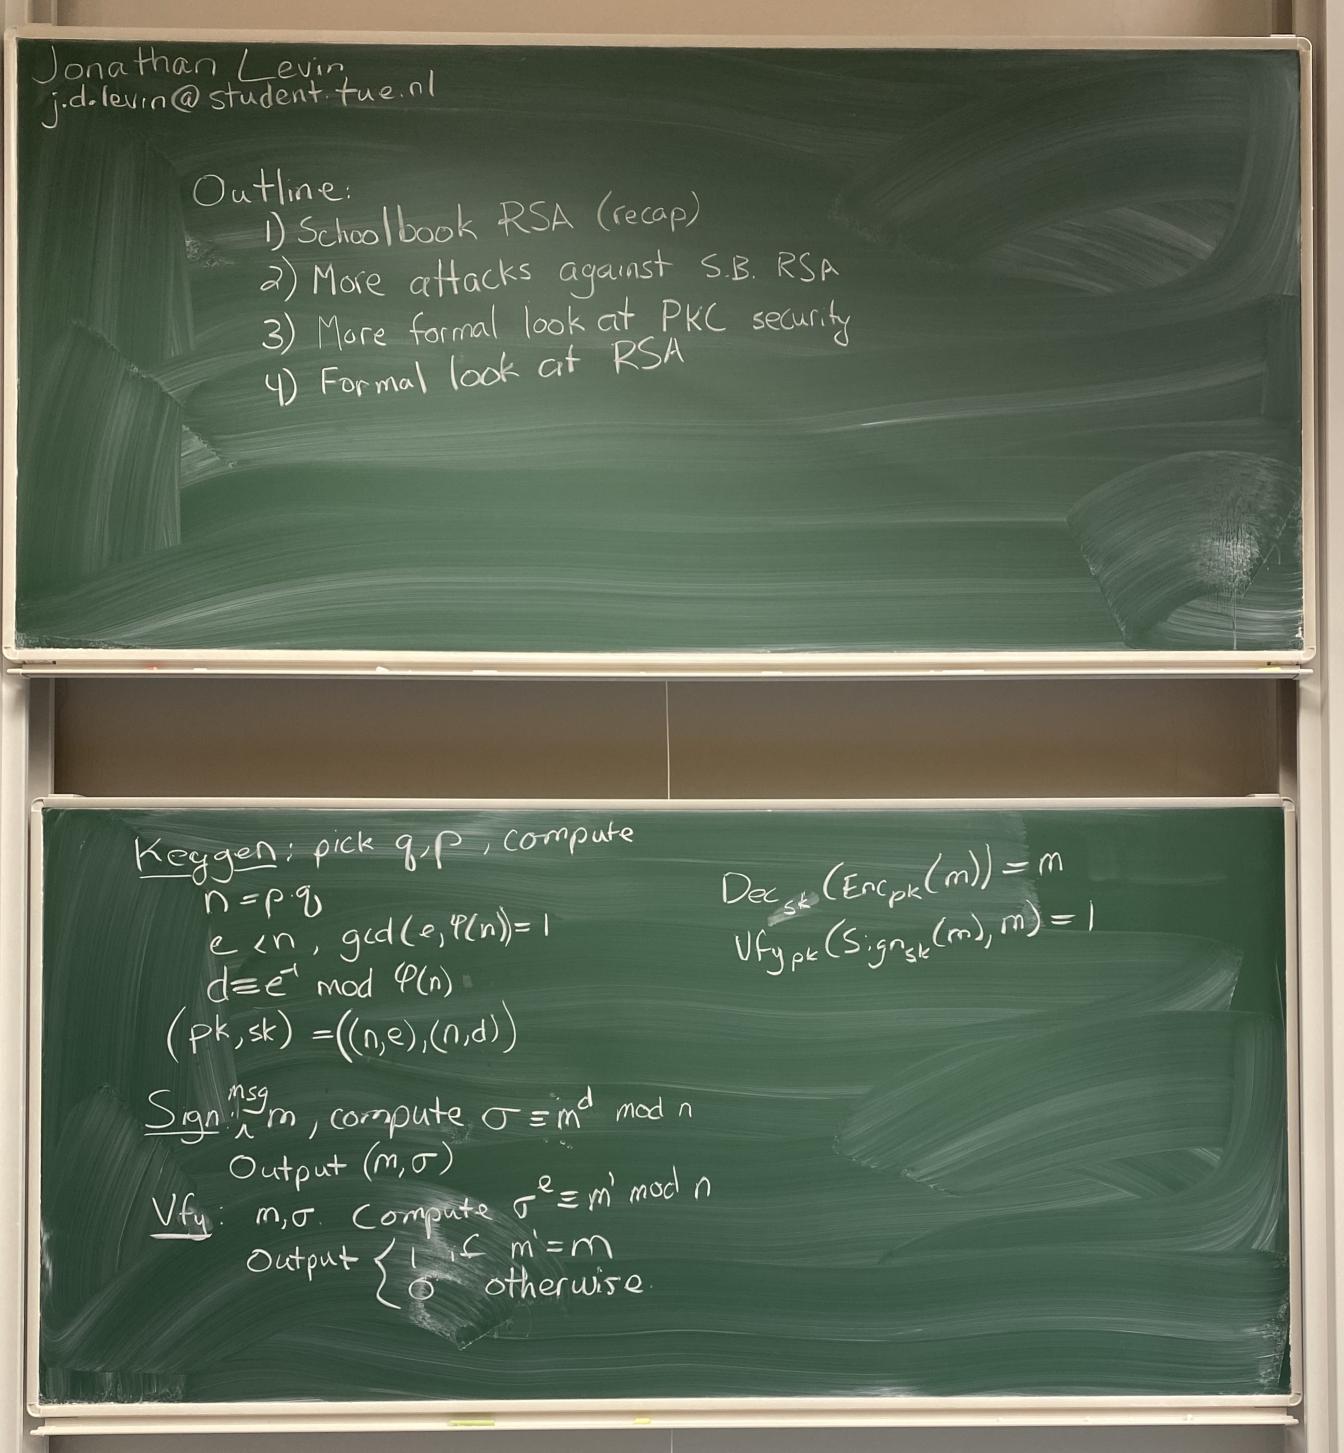 Jonathan Levin
j.d.levin@student.tue.nl
Outline:
1) Schoolbook RSA (recap)
2) More attacks against S.B. RSA
3) More formal look at PKC security
4) Formal look at RSA
Keygen: pick q,p, compute
n=p·q
e<n, gcd(e,φ(n))=1
d≡e⁻¹ mod φ(n)
(pk,sk) =((n,e),(n,d))
Dec_sk(Enc_pk(m))=m
Vfy_pk(Sign_sk(m),m)=1
msg
Sign: ^ m, compute σ≡m^d mod n
Output (m,σ)
Vfy: m,σ. Compute σ^e≡m' mod n
Output { 1 if m'=m
0 otherwise.